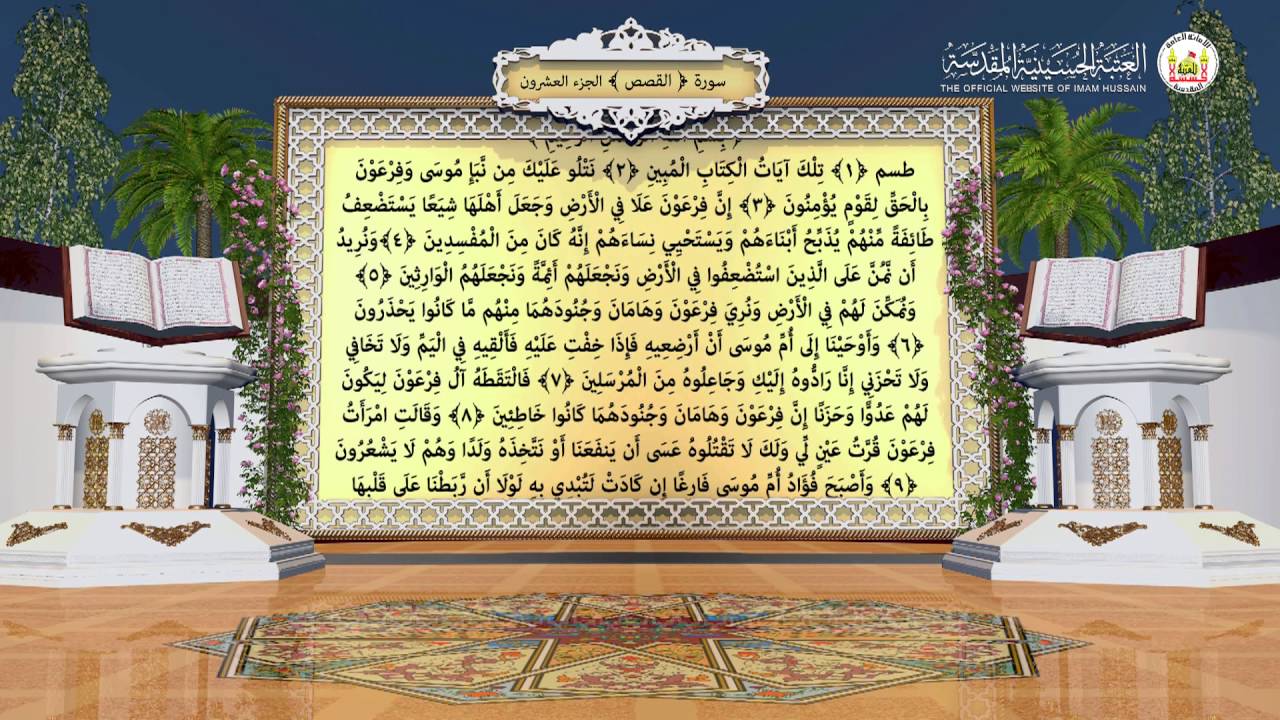 العتبة الحسينية المقدسة
THE OFFICIAL WEBSITE OF IMAM HUSSAIN
سورة ﴿ القصص ﴾ الجزء العشرون
طسم ﴿١﴾ تِلْكَ آيَاتُ الْكِتَابِ الْمُبِينِ ﴿٢﴾ نَتْلُو عَلَيْكَ مِن نَّبَإِ مُوسَى وَفِرْعَوْنَ
بِالْحَقِّ لِقَوْمٍ يُؤْمِنُونَ ﴿٣﴾ إِنَّ فِرْعَوْنَ عَلَا فِي الْأَرْضِ وَجَعَلَ أَهْلَهَا شِيَعًا يَسْتَضْعِفُ
طَائِفَةً مِّنْهُمْ يُذَبِّحُ أَبْنَاءَهُمْ وَيَسْتَحْيِي نِسَاءَهُمْ إِنَّهُ كَانَ مِنَ الْمُفْسِدِينَ ﴿٤﴾ وَنُرِيدُ
أَن نَّمُنَّ عَلَى الَّذِينَ اسْتُضْعِفُوا فِي الْأَرْضِ وَنَجْعَلَهُمْ أَئِمَّةً وَنَجْعَلَهُمُ الْوَارِثِينَ ﴿٥﴾
وَنُمَكِّنَ لَهُمْ فِي الْأَرْضِ وَنُرِي فِرْعَوْنَ وَهَامَانَ وَجُنُودَهُمَا مِنْهُم مَّا كَانُوا يَحْذَرُونَ
﴿٦﴾ وَأَوْحَيْنَا إِلَى أُمِّ مُوسَى أَنْ أَرْضِعِيهِ فَإِذَا خِفْتِ عَلَيْهِ فَأَلْقِيهِ فِي الْيَمِّ وَلَا تَخَافِي
وَلَا تَحْزَنِي إِنَّا رَادُّوهُ إِلَيْكِ وَجَاعِلُوهُ مِنَ الْمُرْسَلِينَ ﴿٧﴾ فَالْتَقَطَهُ آلُ فِرْعَوْنَ لِيَكُونَ
لَهُمْ عَدُوًّا وَحَزَنًا إِنَّ فِرْعَوْنَ وَهَامَانَ وَجُنُودَهُمَا كَانُوا خَاطِئِينَ ﴿٨﴾ وَقَالَتِ امْرَأَتُ
فِرْعَوْنَ قُرَّتُ عَيْنٍ لِّي وَلَكَ لَا تَقْتُلُوهُ عَسَى أَن يَنفَعَنَا أَوْ نَتَّخِذَهُ وَلَدًا وَهُمْ لَا يَشْعُرُونَ
﴿٩﴾ وَأَصْبَحَ فُؤَادُ أُمِّ مُوسَى فَارِغًا إِن كَادَتْ لَتُبْدِي بِهِ لَوْلَا أَن رَّبَطْنَا عَلَى قَلْبِهَا